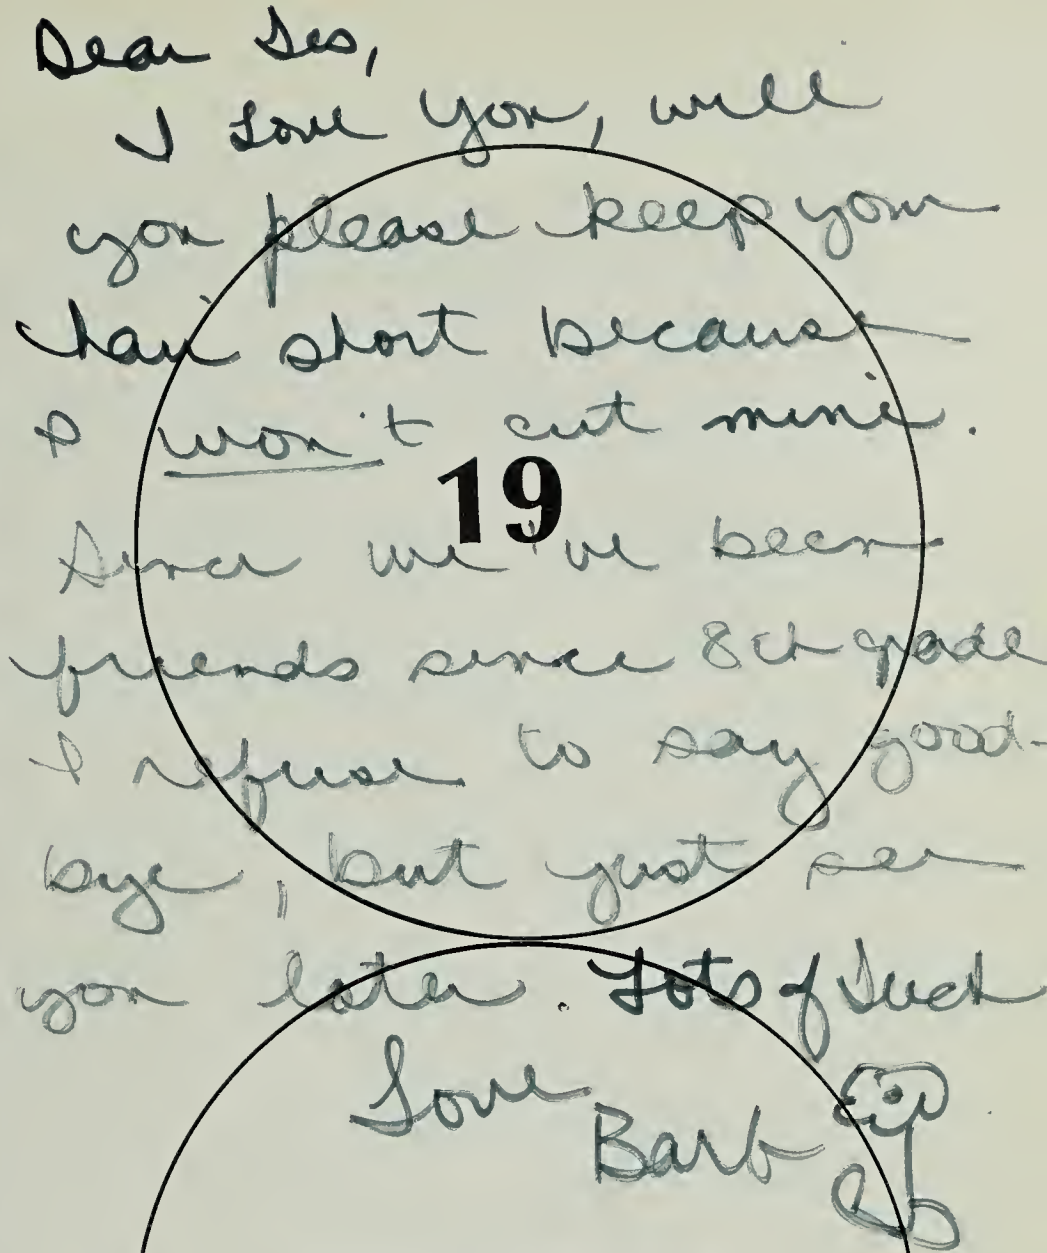 Dear Des,
I Love you, will
you please keep your
hair short because
I won't cut mine.
19
Since we've been
friends since 8th grade
I refuse to say good-
bye, but just see
you later. Lots of Luck
Love
Barb